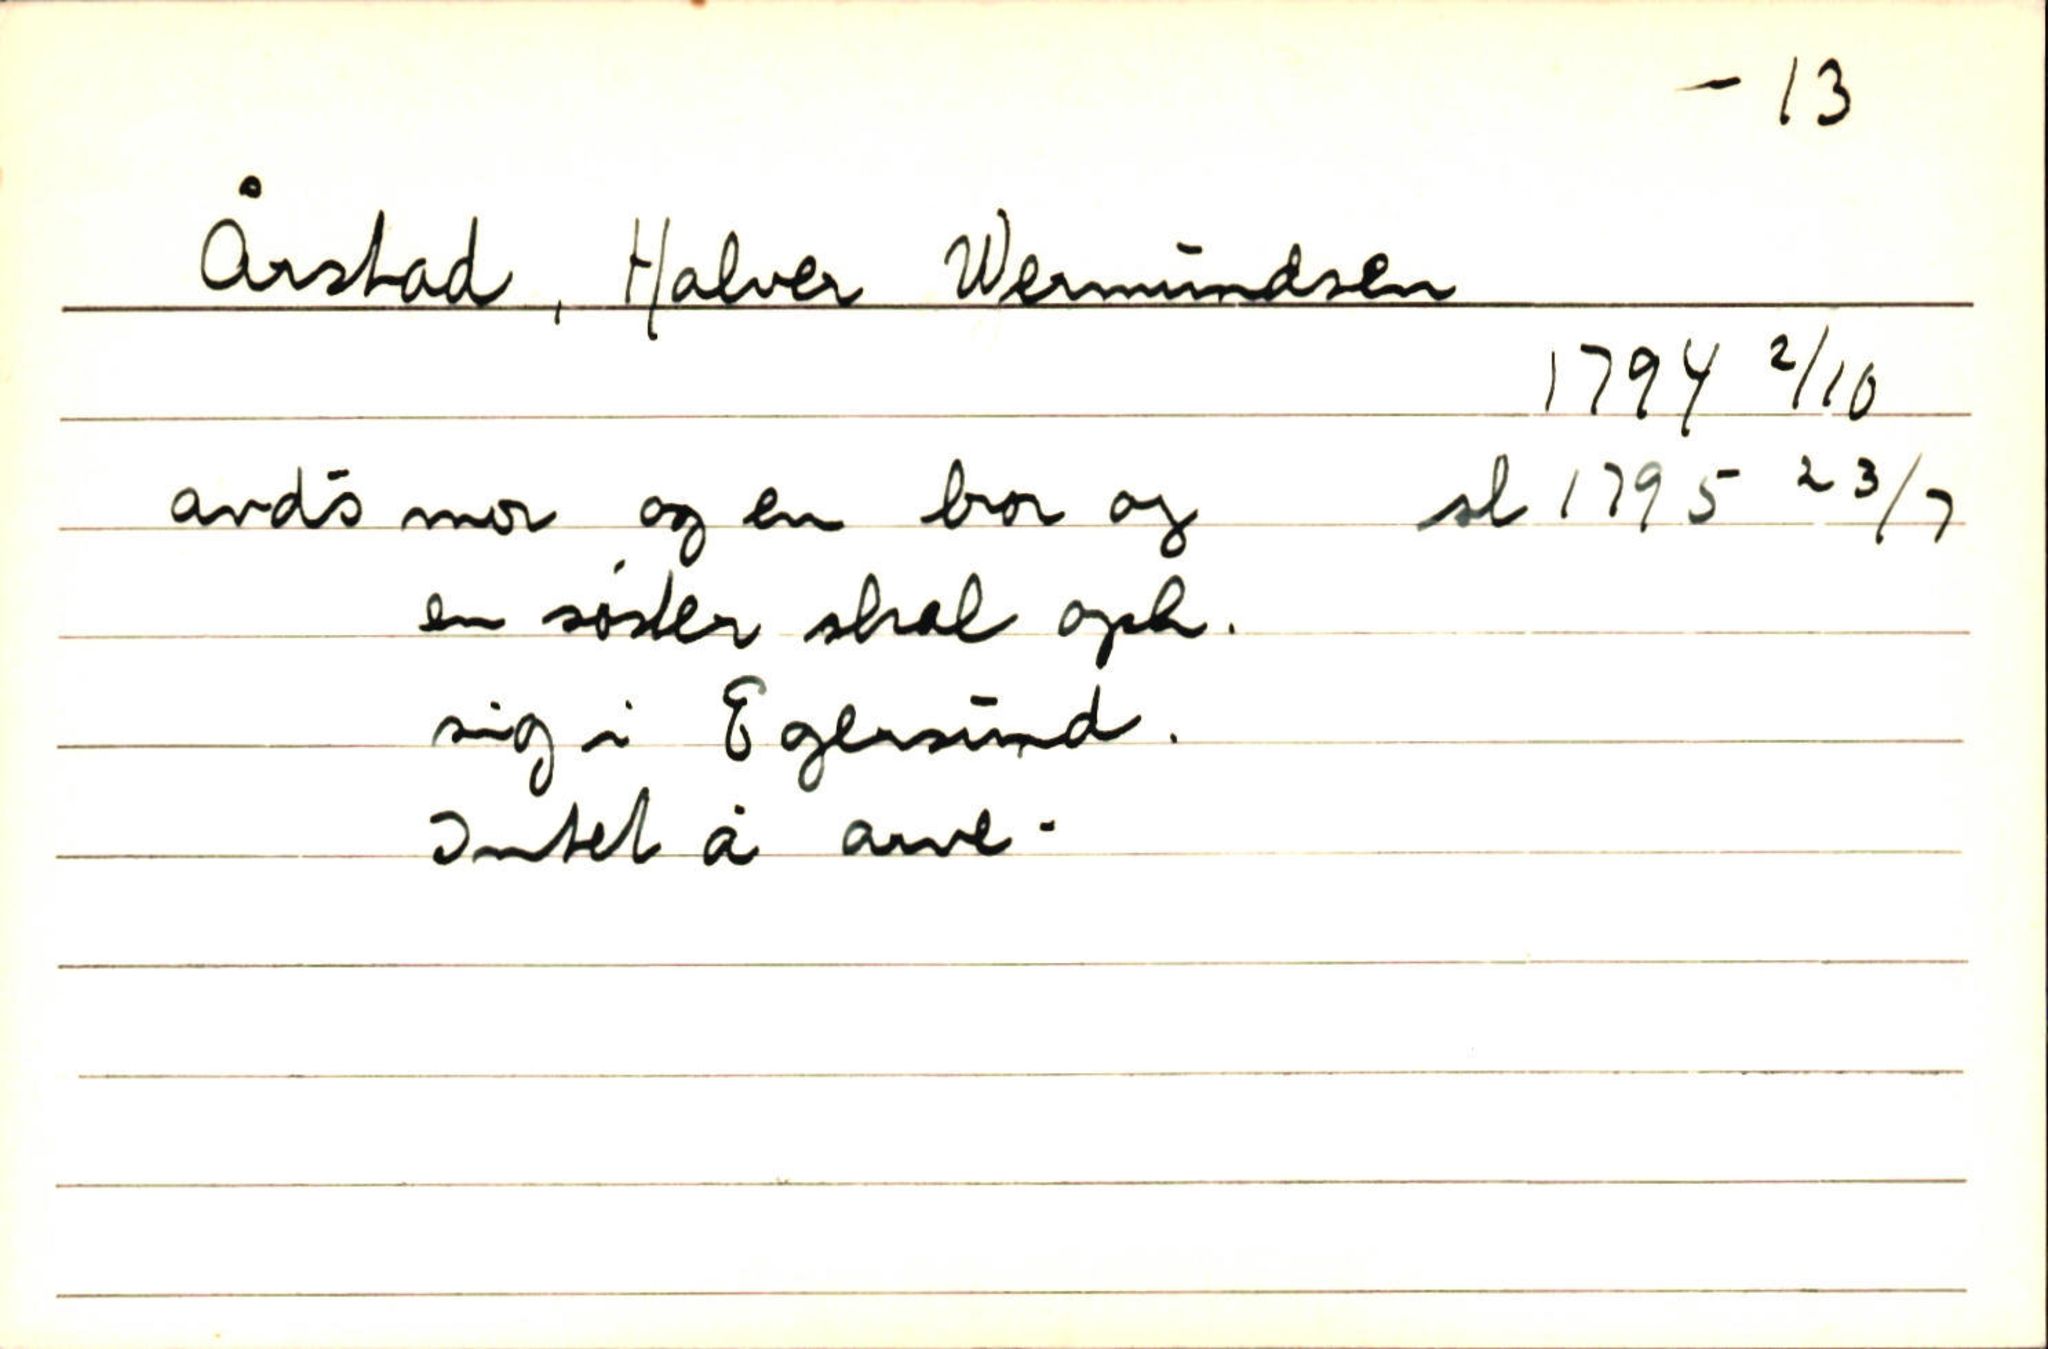 – 13
Årstad, Halver Wermundsen
1794 2/10
avd's mor og en bror og sl 1795 23/7
en søster skal oph.
sig i Egersund.
Intet å arve.